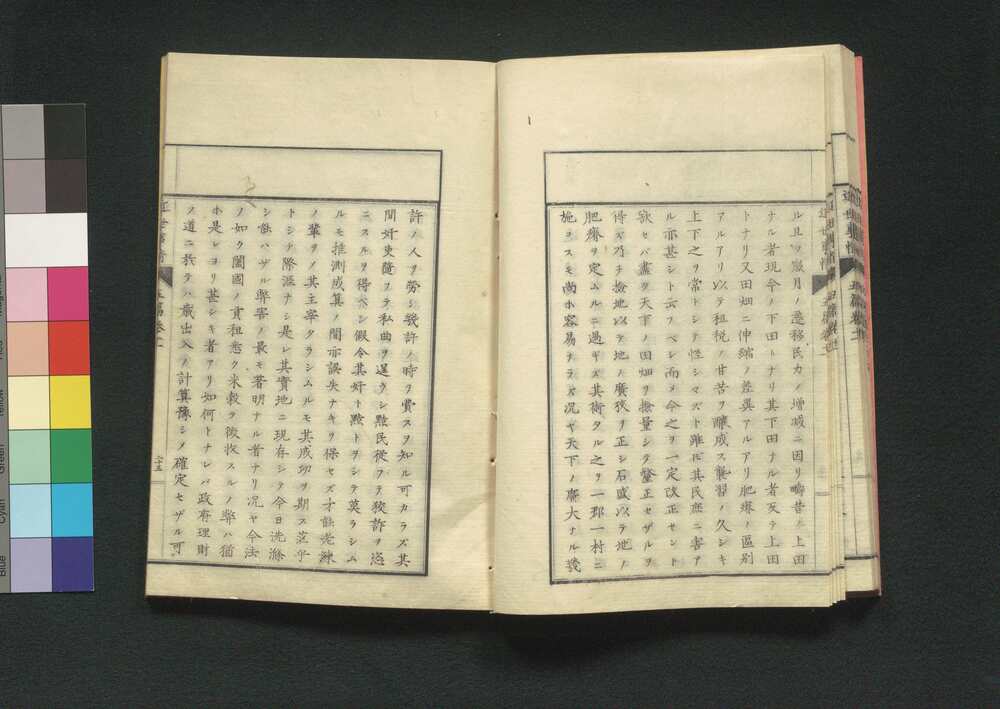 ルニ且ツ歳月ノ遷移民力ノ増減ニ因リ疇昔ノ上田
ナル者現今ノ下田トナリ其下田ナル者反テ上田
トナリ又田畑ニ伸縮ノ差異アルアリ肥瘠ノ區別
アルアリ以テ租税ノ甘苦ヲ釀成ス襲習ノ久シキ
上下之ヲ常トシテ性シマズト雖ドモ其民庶ニ害ア
ル亦甚シト云フベシ而メ今之ヲ一定改正セント
欲セバ盡ク天下ノ田畑ヲ撿量シテ釐正セザルヲ
得ズ乃チ撿地以テ地ノ廣狹ヲ正シ石盛以テ地ノ
肥瘠ヲ定ムルニ過ギズ其術タル之ヲ一郡一村ニ
施コスモ尚ホ容易ナラズ况ヤ天下ノ廣大ナル幾
許ノ人ヲ勞シ幾許ノ時ヲ費スヲ知ル可カラズ其
間奸吏隨フテ私曲ヲ逞ウシ黠民從フテ狡詐ヲ恣
ニスルヲ得ベシ假令其奸ト黠トヲシテ莫ラシム
ルモ推測成算ノ間亦誤失ナキヲ保セズ才能老練
ノ輩ヲメ其主宰タラシムルモ其成功ヲ期ス茫乎
トシテ際涯ナシ是レ其實地ニ現存シテ今日洗滌
シ能ハザル弊害ノ最モ著明ナル者ナリ况ヤ今法
ノ如ク闔國ノ貢租悉ク米穀ヲ徴收スルノ弊ハ猶
ホ是レヨリ甚シキ者アリ如何トナレバ政府理財
ノ道ニ於テハ歳出入ノ計算豫シメ確定セザル可
近世事情
五篇卷十一